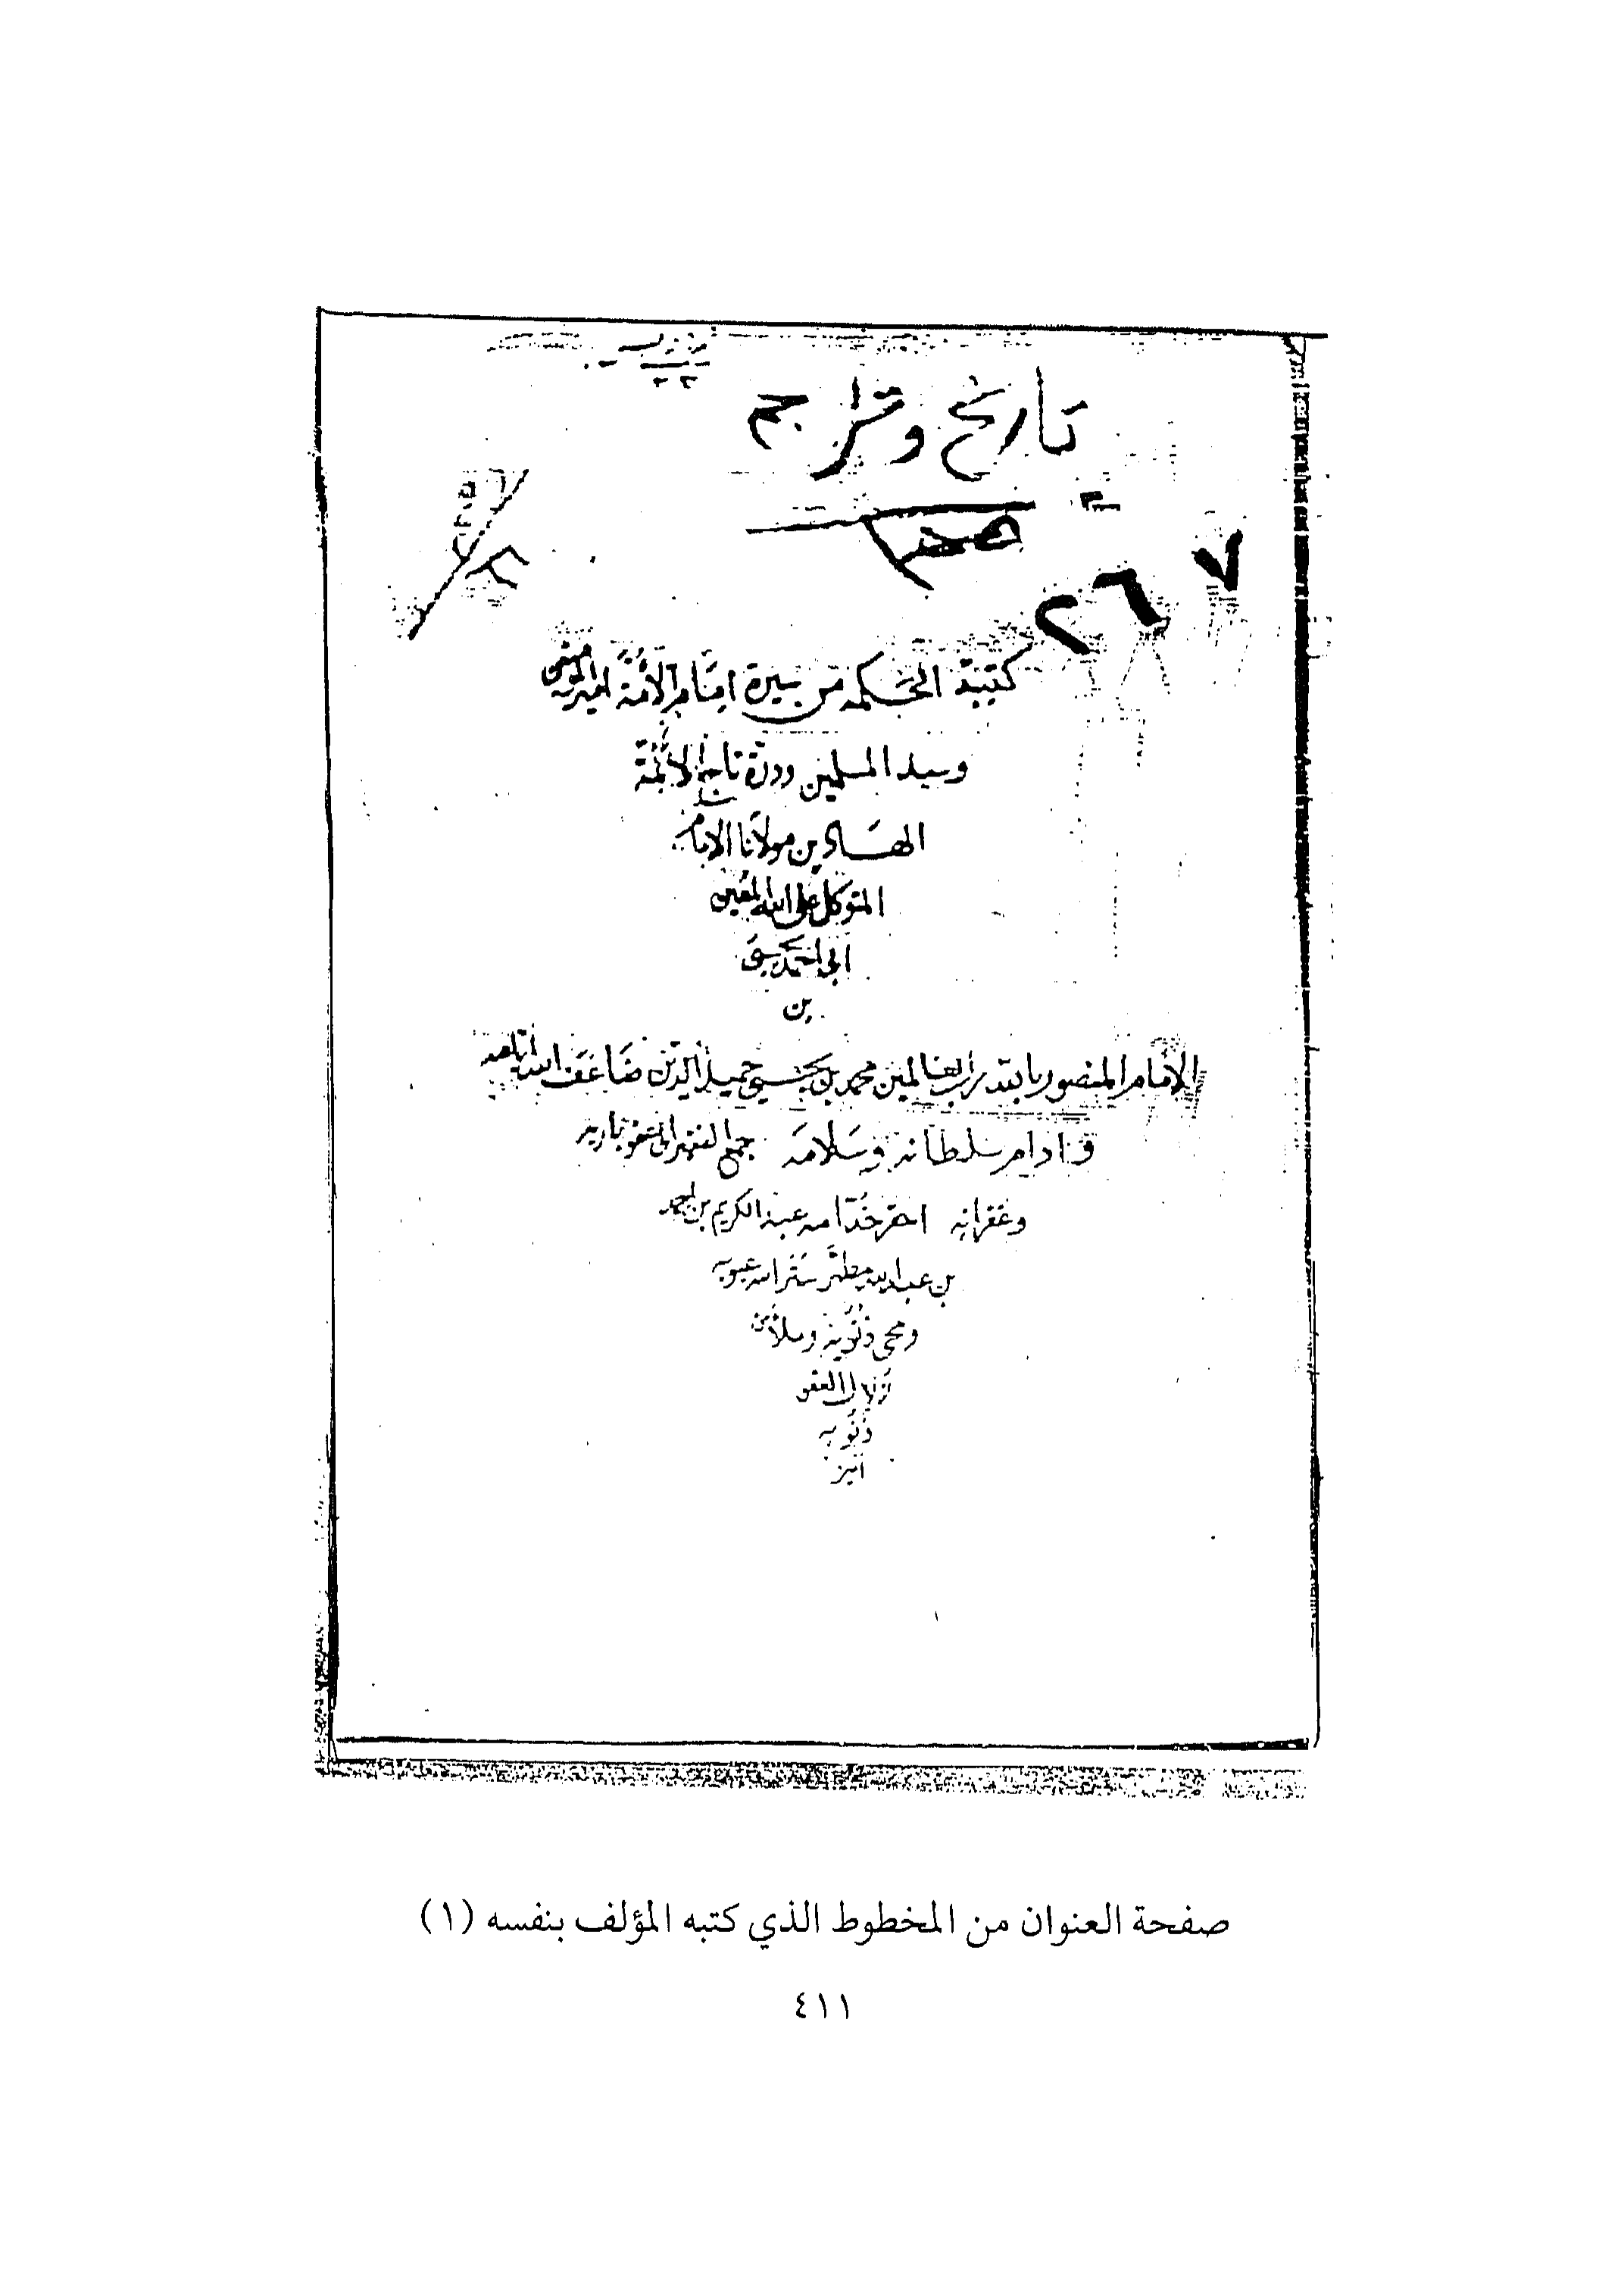 تاريخ وتراجم
٢٦٧
كتيبة الحكمه من سيرة امام الأمة امير المومنين
وسيد المسلمين ودرة تاج الائمة
الهادي بن مولانا الامام
المتوكل على الله المعين
ابي احمد يحيى
بن
الامام المنصور بالله رب العالمين محمد بن يحيى حميد الدين ضاعف الله
وادام سلطانه وسلامه جمع الفقير الى عفو باريه
وغفرانه احقر خدامه عبد الكريم بن احمد
بن عبد الله مطهر ستر الله عيوبه
ومحى ذنوبه وملأ من
زلال العفو
ذنوبه
امين
صفحة العنوان من المخطوط الذي كتبه المؤلف بنفسه (١)
٤١١